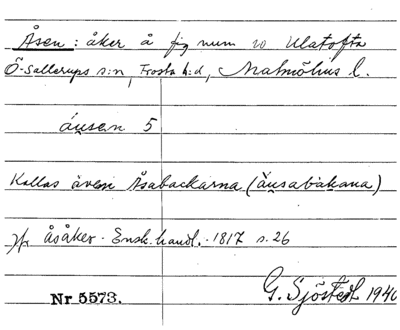 Åsen: åker å fig num 10 Ulatofta
Ö-Sallerups s:n, Frosta h:d, Malmöhus l.
áusen 5
Kallas även Åsabackarna (äusabakana)
Jfr åsåker. Ensk. handl. 1817 s. 26
G. Sjöstedt 1940
Nr 5573.